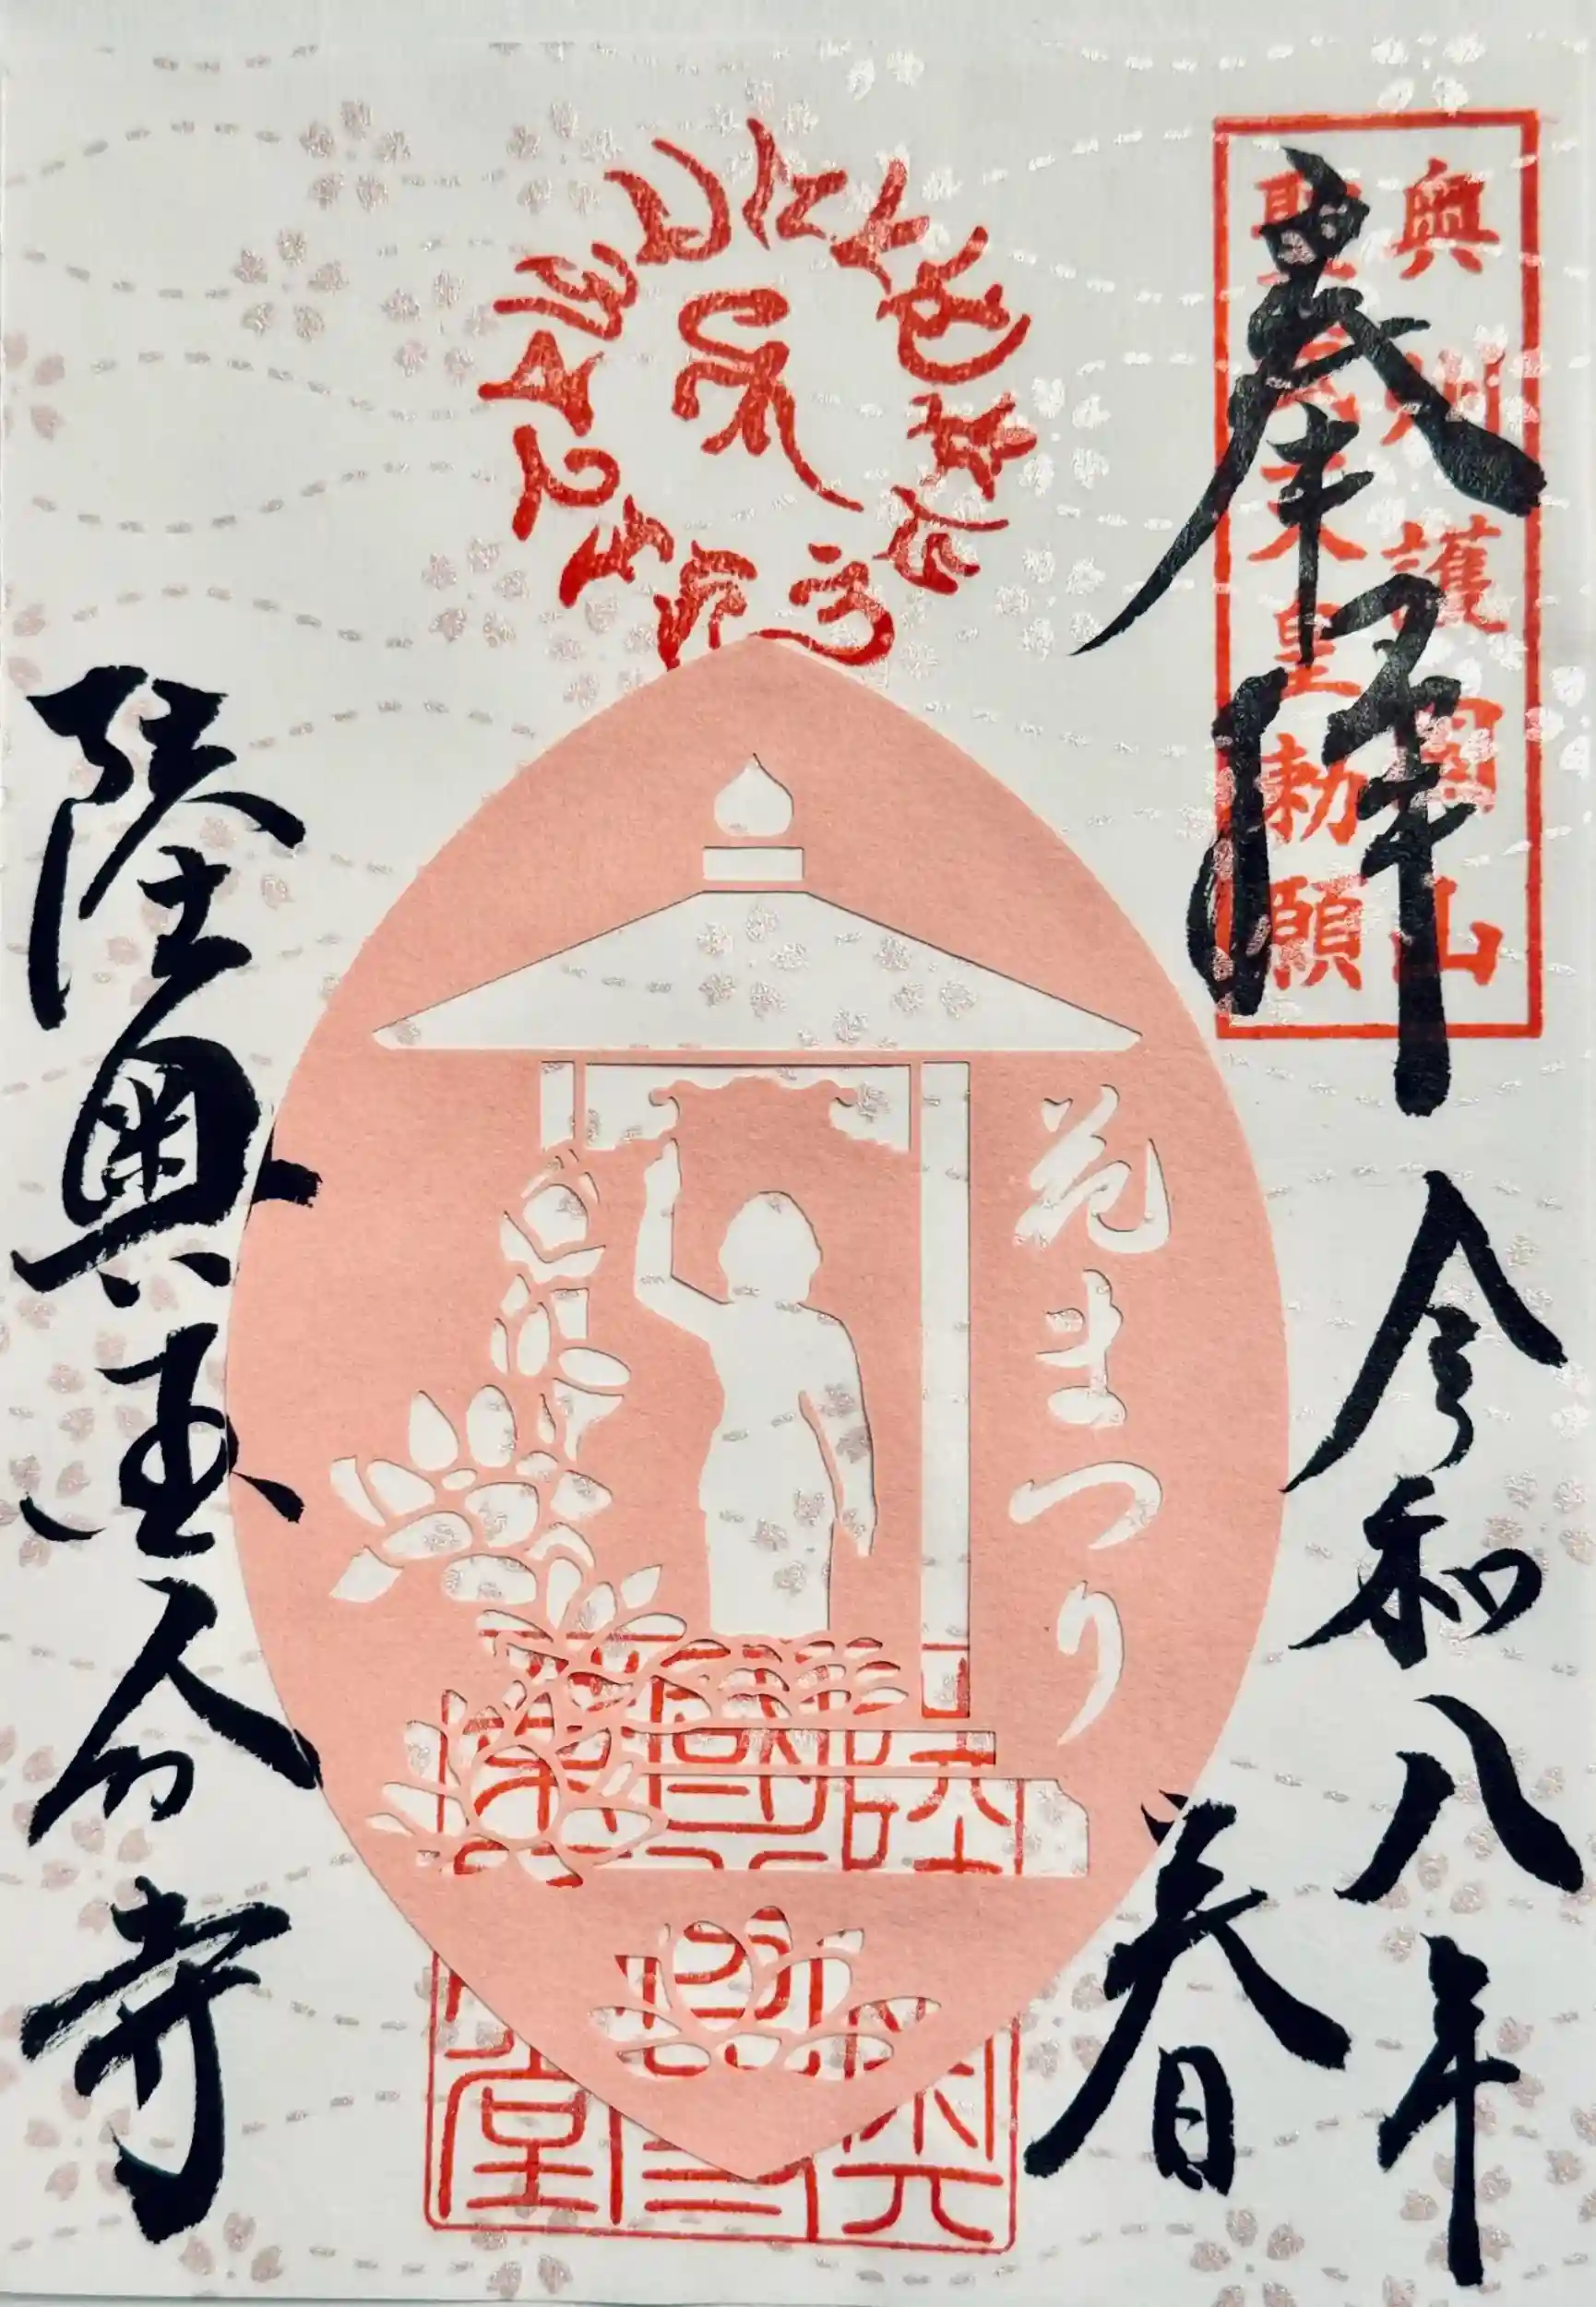 奥州護國山
聖武天皇勅願
奉拝
令和八年
春
花まつり
陸奥国分寺